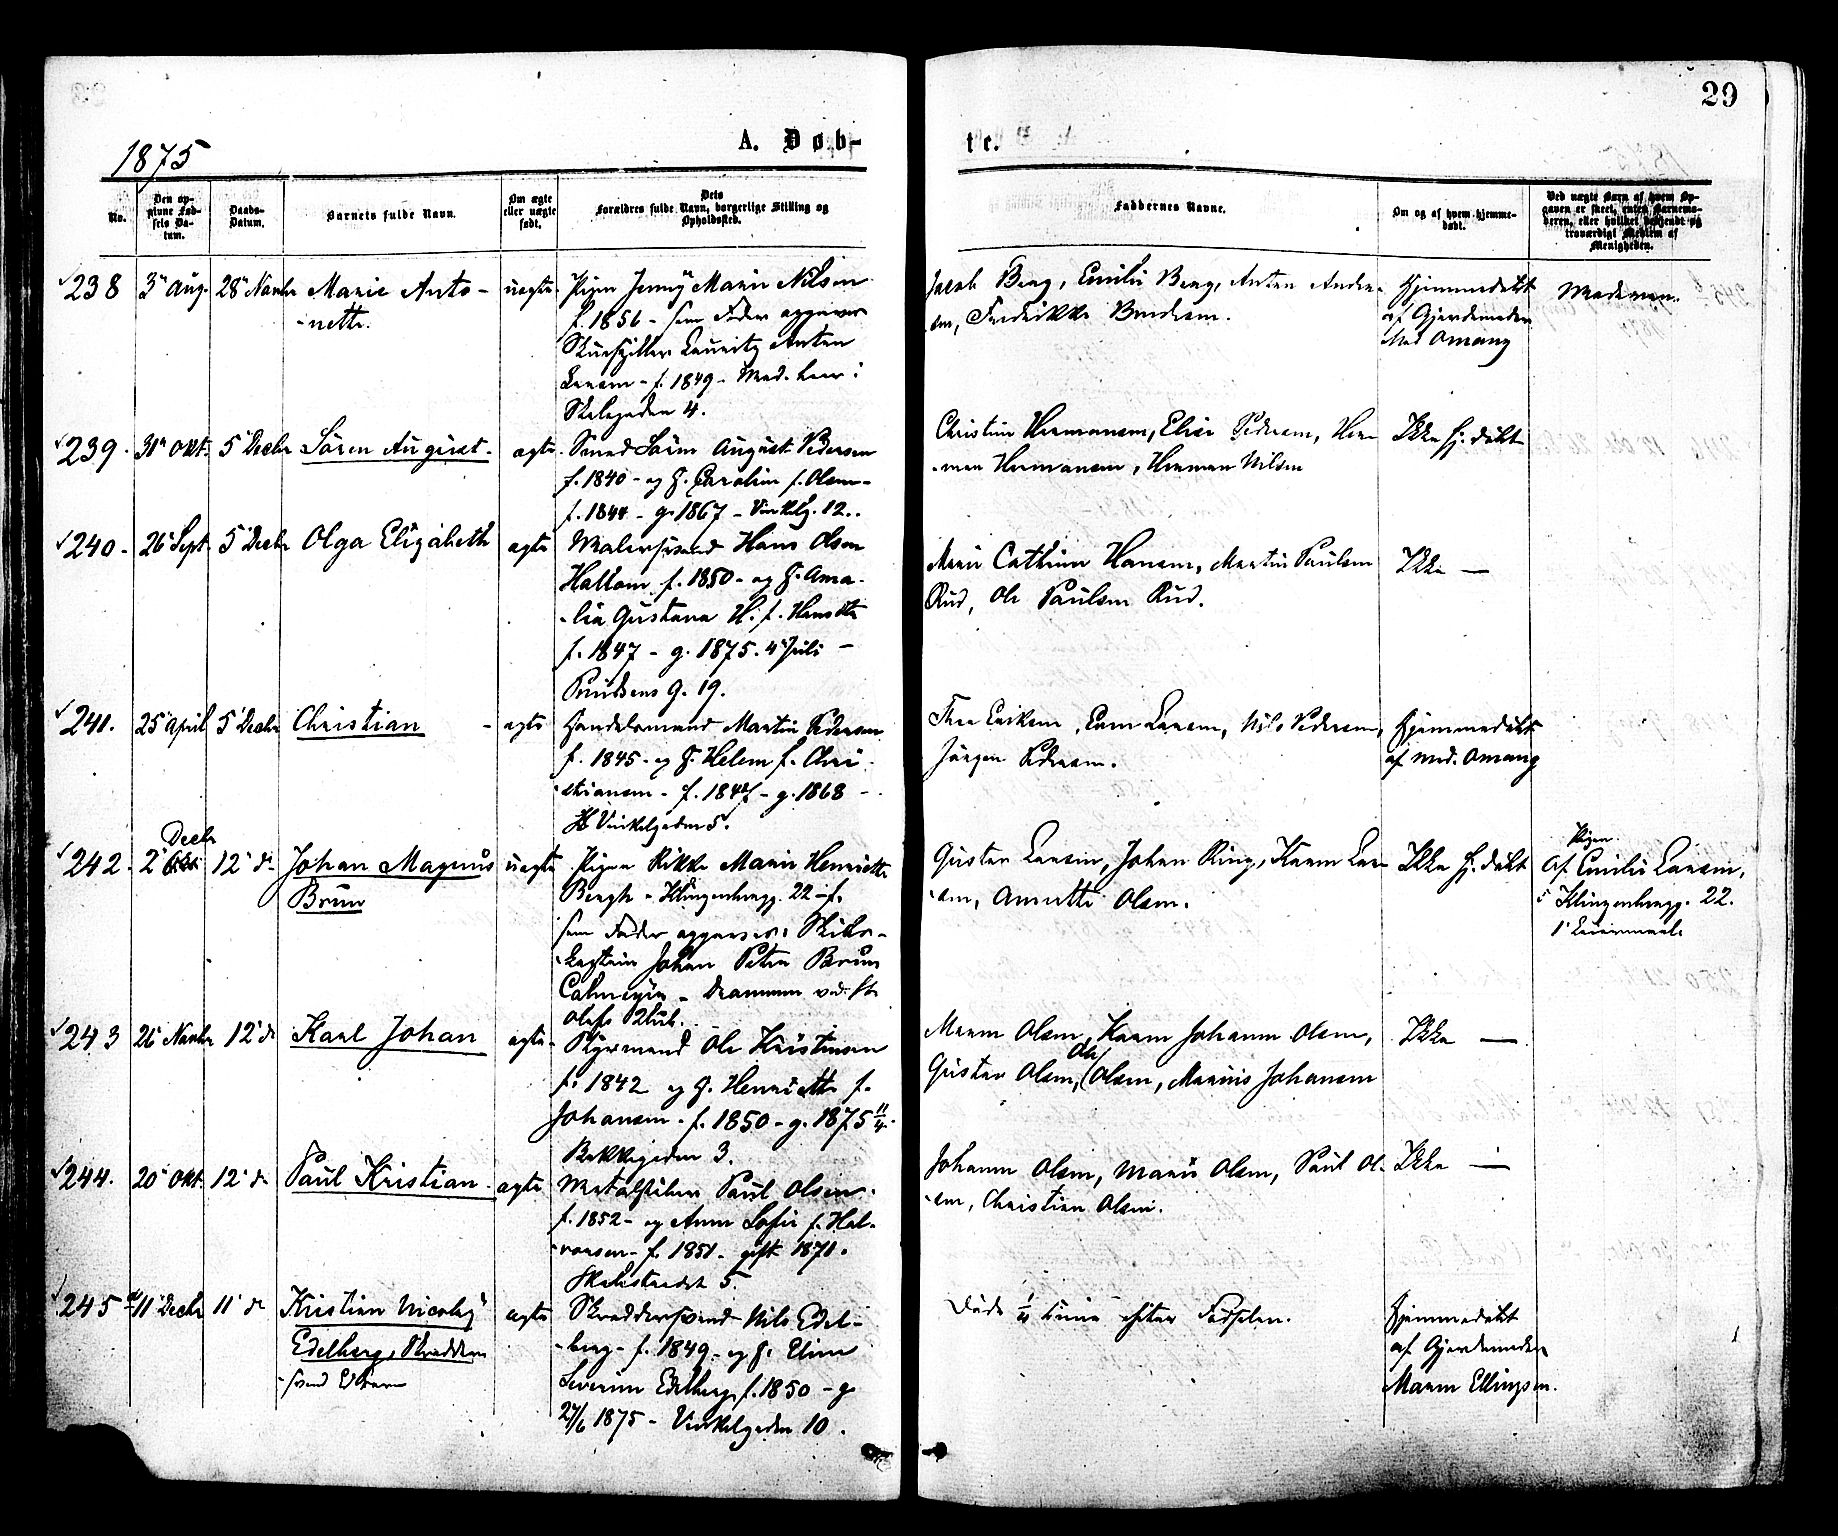 29
1875
A. Døb-
te.
No.
Den op-
givne Fød-
sels Da-
tum.
Daabs-
Datum.
Barnets fulde Navn.
Om ægte
eller uægte
født.
Dets
Forældres fulde Navn, borgerlige Stilling og
Opholdssted.
Faddernes Navne.
Om og af hvem hjemme-
døbt.
Ved uægte Barn af hvem Op-
gaven er skeet, enten Barnemo-
deren, eller hvilket bekjendt og
troværdigt Medlem af
Menigheden.
238 3 Aug. 28 Novbr Marie Anto-
-nette.
uægte
Pigen Jenny Marie Nilsen
f. 1856 - som Fader opgives
Lauritz Anton
Larsen - f. 1849 -
4.
Jacob Berg, Emilie Berg, Anton Ander-
sen, Fredrikke
Hjemmedøbt
af Gjordemoder
Mad Omang
Moderen.
239. 31 Okt. 5 Decbr Søren August.
ægte
Smed Søren August Pedersen
f. 1840 - og H. Caroline f. Olsen
f. 1844 - g. 1867 - Vinkelg. 12.
Christine Hermansen, Elise Pedersen, Her-
-man Hermansen, Herman Nilsen
Ikke hj. døbt
240. 26 Sept. 5 Decbr Olga Elizabeth
ægte
Malersvend Hans Olsen
f. 1850 - og H. Ama-
-lia Gustava H. f.
f. 1847 - g. 1875. 4 Juli -
G. 19.
Marie Cathrine Hansen, Martin Paulsen
Rud, Ole Paulsen Rud.
Ikke —
241. 25 April 5 Decbr Christian
ægte
Handelsmand Martin Pedersen
f. 1845 - og H. Helene f. Chri-
stiansen - f. 1847 - g. 1868 -
Vinkelgaden 5.
Thea Eriksen, Larsen, Nils Pedersen,
Jørgen Pedersen.
Hjemmedøbt
af Mad. Omang
Decbr
242. 2 12 d. Johan Magnus
Brun
uægte
Pigen Rikke Marie Henriette
Bergh - Klingenbergg. 22 - f.
som Fader opgives: Skibs-
-kaptein Johan Peter Brun
Calmeyer - Drammen ved St.
Olafs Klub.
Gustav Larsen, Johan Ring, Karen Lar-
sen, Annette Olsen.
Ikke hj. døbt
Pigen
af Emilie Larsen,
i Klingenbergg. 22.
1 Leiermaal.
243 26 Novbr 12 d. Karl Johan
ægte
Ole Kristensen
f. 1842 og H. Henriette f.
Johansen - f. 1850 - g. 1875 11/4.
Bakkegaden 3.
Maren Olsen, Karen Johanne Olsen,
Ole
Gustav Olsen, Olsen, Marius Johansen
Ikke —
244. 20 Okt. 12 d. Paul Kristian
ægte
Paul Olsen
f. 1852 - og Anne Sofie f. Hal-
-vorsen - f. 1851 - gift 1871.
5.
Johanne Olsen, Marie Olsen, Paul Ol-
-sen, Christian Olsen.
Ikke —
245 11 Decbr 11 d. Kristian Nicolay
Edelberg, Skredder-
-svend
ægte
Skreddersvend Nils Edel-
-berg - f. 1849 - og H. Eline
Severine Edelberg, f. 1850 - g
27/6 1875 - Vinkelgaden 10.
Døde 1/4 Time efter Fødselen.
Hjemmedøbt
af Gjordemoder
Maren Ellingsen.